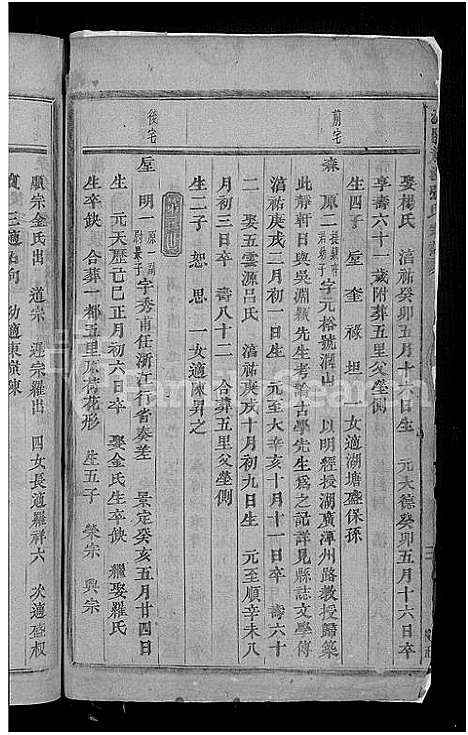 娶楊氏 淳祐癸卯五月十 日生 元大德癸卯五月十六日卒
享壽六十一歲附葬五里父塋側
生四子 垕 奎 祿 坦 女適湖塘盛保孫
前宅
森 原二 字元裕號潤山 以明經授湖廣潭州路教授歸築
此靜軒日與吳淵穎先生考論古學先生爲之記詳見縣誌文學傳
淳祐庚戌二月初一日生 元至大辛亥十月十一日卒 壽六十
二 娶五雲源呂氏 淳祐庚戌十月初九日生 元至順辛未八
月初三日卒 壽八十二 合葬五里父塋側
生二子 恕 思 一女適陳昇之
後宅
垕 明一 字秀甫任浙江行省奏差 景定癸亥五月廿四日
生 元天歷己巳正月初六日卒 娶金氏生卒缺 繼娶羅氏
生卒缺 合葬一都五里 荷花形 生五子 榮宗 興宗
順宗金氏出 道宗 遜宗羅出 四女長適羅祥六 次適盛叔
三適 幼適東 陳